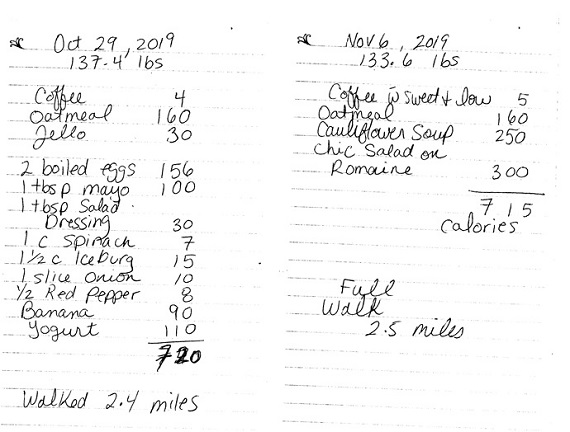 Oct 29, 2019
137.4 lbs
Coffee 4
Oatmeal 160
Jello 30
2 boiled eggs 156
1 tbsp mayo 100
1 tbsp Salad
Dressing 30
1 c Spinach 7
1 1/2 c Iceburg 15
1 slice Onion 10
1/2 Red Pepper 8
Banana 90
Yogurt 110
720
Walked 2.4 miles
Nov 6, 2019
133.6 lbs
Coffee w̄ Sweet + low 5
Oatmeal 160
Cauliflower Soup 250
Chic Salad on
Romaine 300
715
Calories
Full
Walk
2.5 miles